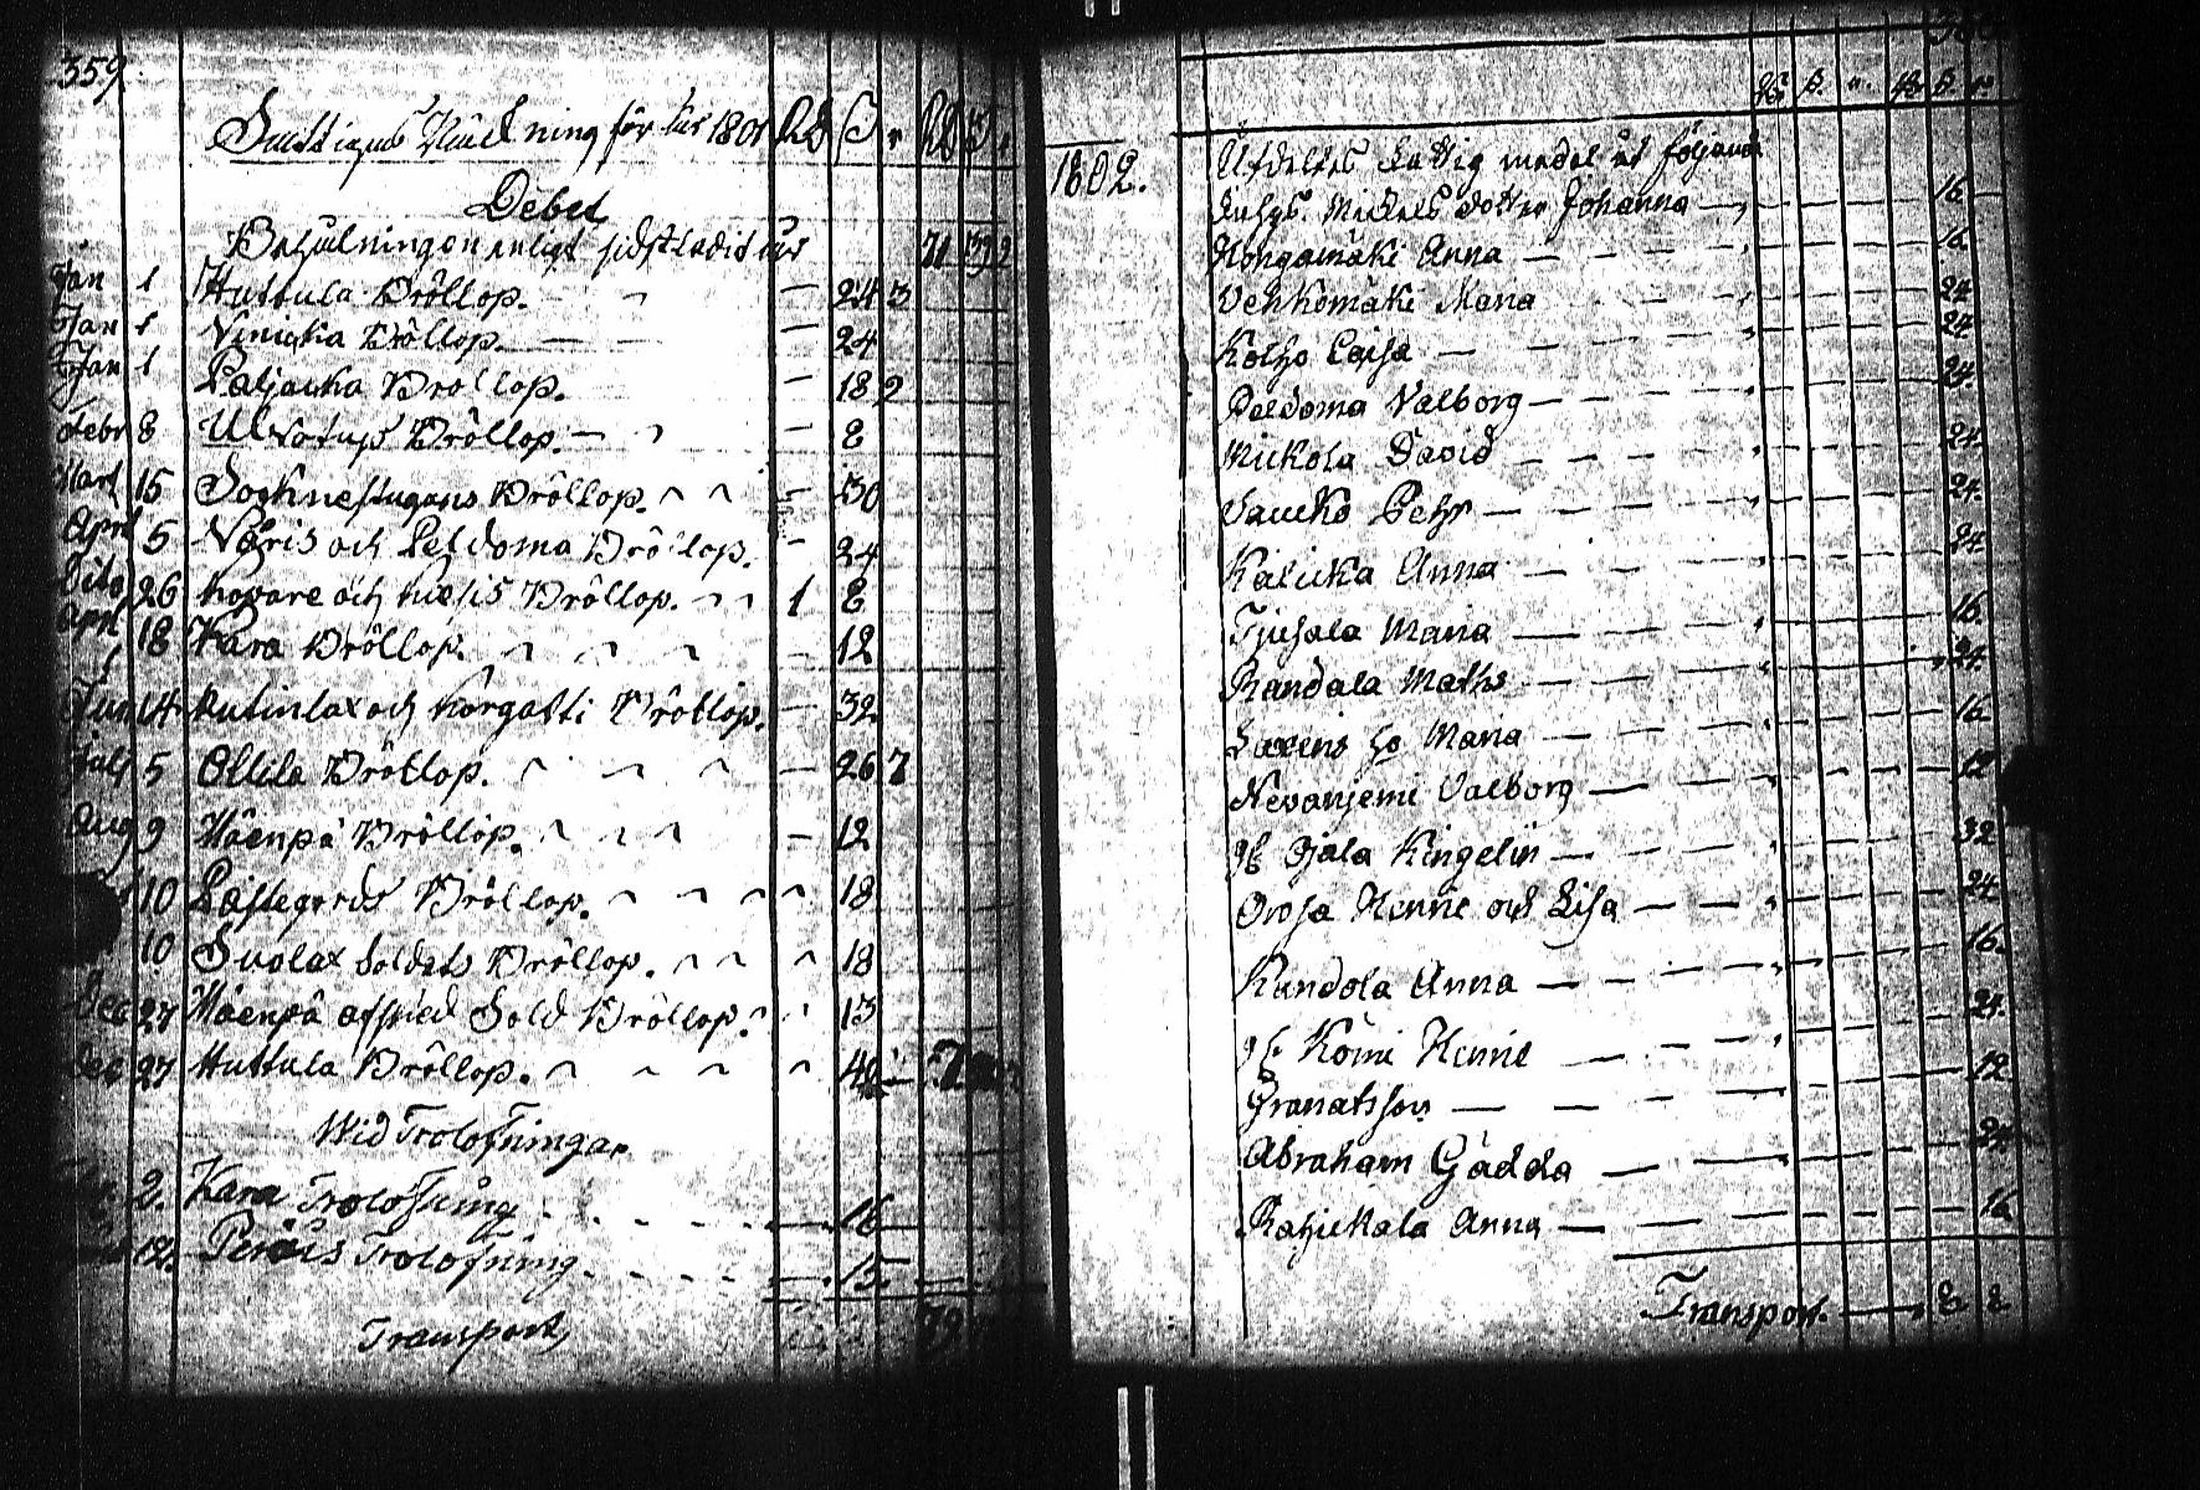 359
Fattigas Räckning för år 1801 RD S r RD S r
Debet
Behållningen enligt sidstledit år 71 39 2
Jan 1 Huttula Bröllop. — 24 3
Jan 1 Niniska Bröllop. — 24
Jan 1 Paljacka Bröllop. — 18 2
Febr 8 Ulvotups Bröllop. — 8
Mart 15 Socknestugans Bröllop. — 30
Apri 5 Nåris och Peldoma Bröllop. — 24
Dito 26 Kopare och Kiesis Bröllop. 1 8
Apri 18 Kara Bröllop. — 12
Jun 14 Rutinlax och Korgatti Bröllop. — 32
Juli 5 Ollila Bröllop. — 26 7
Aug 9 Mäenpä Bröllop. — 12
10 Påstegords Bröllop. 18
10 Suolax Soldats Bröllop. 18
Dec 27 Mäenpä afsked Sold Bröllop. 13
Dec 27 Huttula Bröllop. 40
Wid Trolofningar
2. Kara Trolofning — 16
12. Peräis Trolofning — 15
Transport, 79
1802. Utdeltes Fattig medel åt följande
Michels dotter Johanna — 16
Kongamäki Anna — 16
Vehkomäki Maria 24
Kolho Caisa — 24
Peldoma Valborg — 24
Mickola David — 24
Saucko Pehr — 24
Kalicka Anna — 24
Tjuhala Maria — 16
Randala Maths — 24
Maria — 16
Nevanjemi Valborg — 12
Ojala Kingelin — 32
Orosa Henne och Lisa — 24
Kundola Anna — 16
Kömi Henne — 24
Granatsson — 12
Abraham Gädda — 24
Rahjukala Anna — 16
Transport. — 8 8